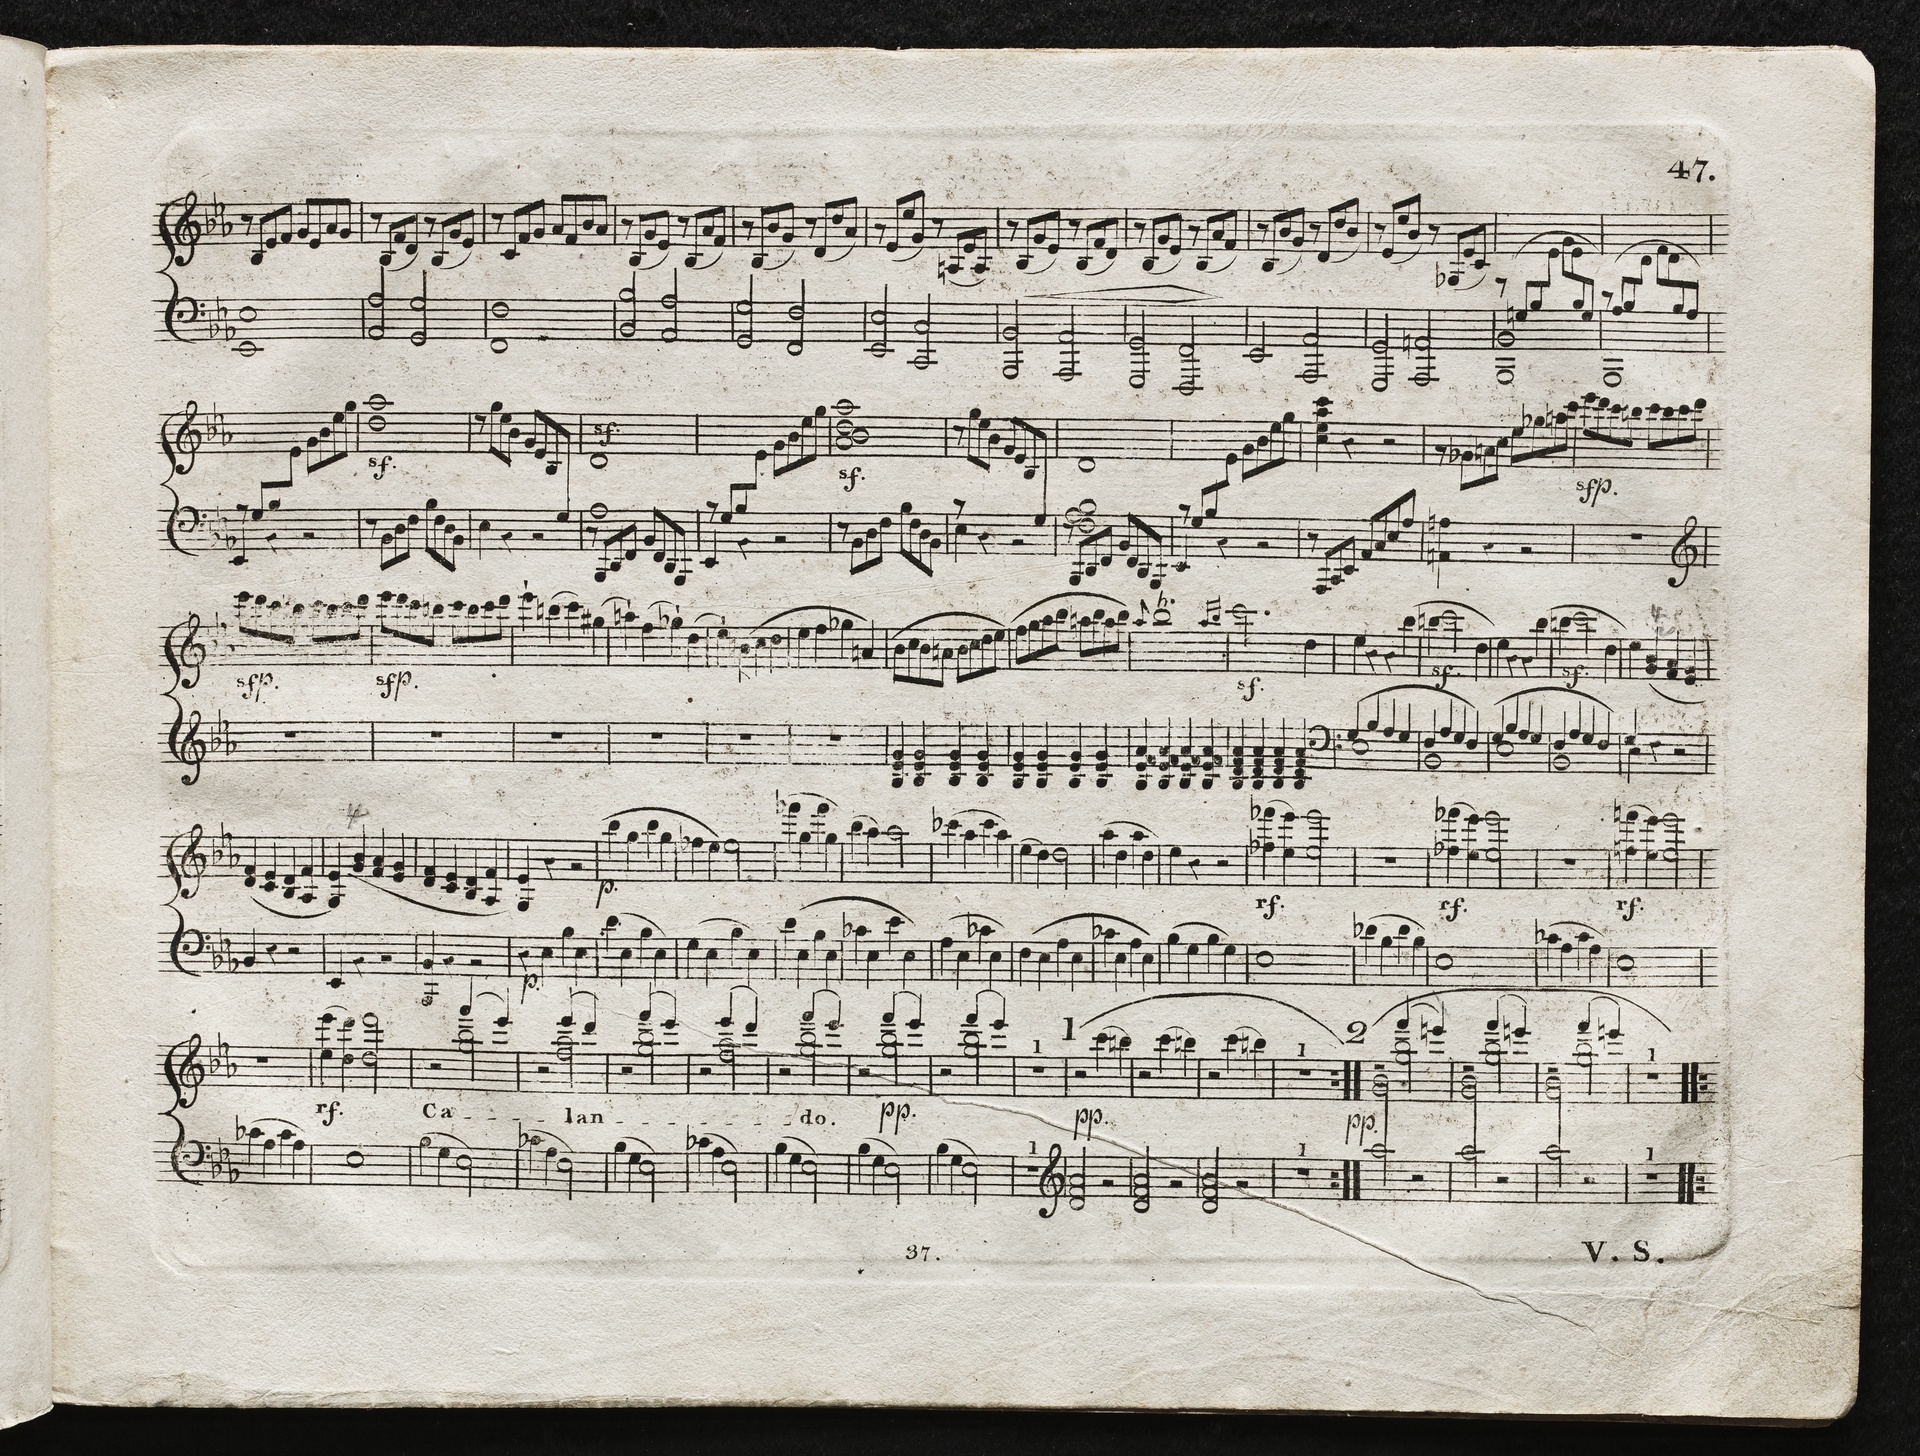 47.
sf. sf. sf. sfp.
sfp. sfp. sf. sf. sf.
p. rf. rf. rf.
p.
1 1 1 2 1
rf. Ca - - - lan - - - do. pp. pp. pp.
1 1 1
37.
V. S.